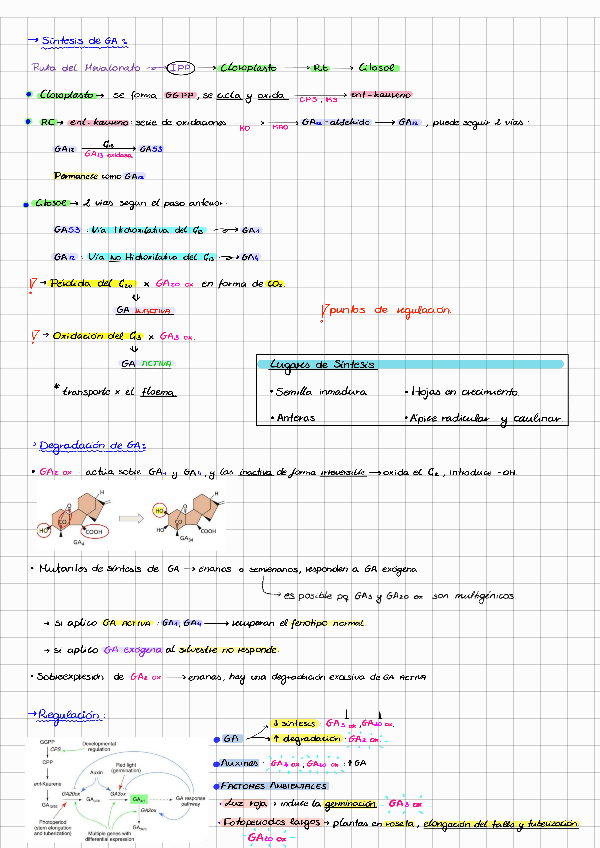 → Síntesis de GA:
Ruta del Mevalonato → IPP → Cloroplasto → RE → Citosol
• Cloroplasto → se forma GGPP, se cicla y oxida CPS, KS → ent-kaureno
• RE → ent-kaureno: serie de oxidaciones KO → KAO → GA12-aldehido → GA12, puede seguir 2 vías:
GA12 C13 → GA53
GA13 oxidasa
Permanece como GA12
• Citosol → 2 vías según el paso anterior:
GA53: Vía Hidroxilativa del C13 → GA1
GA12: Vía No Hidroxilativa del C13 → GA4
! → Pérdida del C20 x GA20 ox en forma de CO2.
⇓
GA INACTIVA
! puntos de regulación.
! → Oxidación del C3 x GA3 ox.
⇓
GA ACTIVA
* transporte x el floema
Lugares de Síntesis
• Semilla inmadura • Hojas en crecimiento.
• Anteras • Ápice radicular y caulinar
> Degradación de GA:
• GA2 ox actúa sobre GA1 y GA4, y las inactiva de forma irreversible → oxida el C2, introduce -OH.
H
HO CO COOH
GA4
H
HO HO CO COOH
GA34
• Mutantes de síntesis de GA → enanos o semienanos, responden a GA exógena
↳ es posible pq GA3 y GA20 ox son multigénicos
→ si aplico GA ACTIVA: GA1, GA4 → recuperan el fenotipo normal
→ si aplico GA exógena al silvestre no responde.
• Sobreexpresión de GA2 ox → enanas, hay una degradación excesiva de GA ACTIVA
→ Regulación:
• GA → ↓ síntesis: GA3 ox, GA20 ox.
→ ↑ degradación: GA2 ox
• Auxinas: GA20 ox ↑ GA
• FACTORES AMBIENTALES
· Luz roja → induce la germinación GA3 ox
· Fotoperiodos largos → plantas en roseta, elongación del tallo y tuberización.
GA20 ox
GGPP
CPS
Developmental regulation
CPP
Red light (germination)
Auxin
ent-Kaurene
GA20ox GA3ox
GA response pathway
GA2ox
Photoperiod (stem elongation and tuberization)
Multiple genes with differential expression